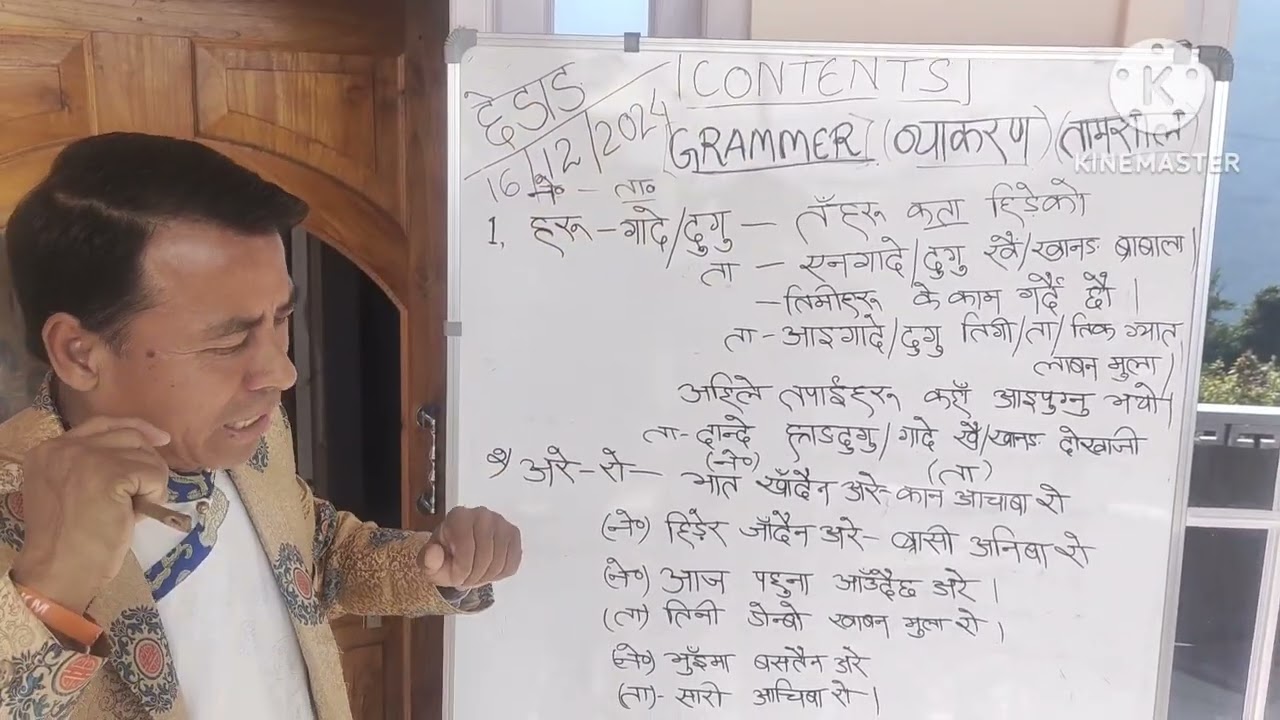 हेडाड
16/12/2024
CONTENTS
GRAMMER (व्याकरण) (तामसाले
KINEMASTER
ने॰ - ता॰
1, हरू - गादे/दुगु - तँहरू कता हिडेको
ता - एनगादे/दुगु खै/खानङ ब्राबाला।
- तिमीहरू के काम गर्दै छौ।
ता - आइगादे/दुगु तिगी/ता/तिक ग्यात
लाबन मुला।
अहिले तपाईहरू कहाँ आइपुग्नु भयो।
ता - दान्दे ह्राङदुगु/गादे खै/खानङ दोखाजी
२/ अरे - रो - (ने॰) भात खाँदैन अरे - (ता) कान आचाबा रो
(ने॰) हिडेर जाँदैन अरे - ब्रासी अनिबा रो
(ने॰) आज पहुना आउँदैछ अरे।
(ता) तिनी डोन्बो खाबन मुला रो।
(ने॰) भुइँमा बस्तैन अरे
(ता) - सारी आचिबा रो।
TM